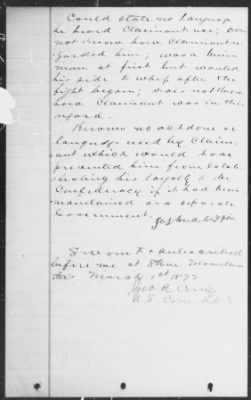 Could state no language
he heard Claimant use; Does
not know how Claimant re-
garded him; was a Union
man at first but wanted
his side to whip after the
fight began; Does not know
how Claimant was in this
regard.
Knows no act done or
language used by Claim-
ant which would have
prevented him from estab-
lishing his loyalty to the
Confederacy if it had been
maintained as a separate
Government.
Sworn to & subscribed
before me at Stone Mountain
this March 1st 1872